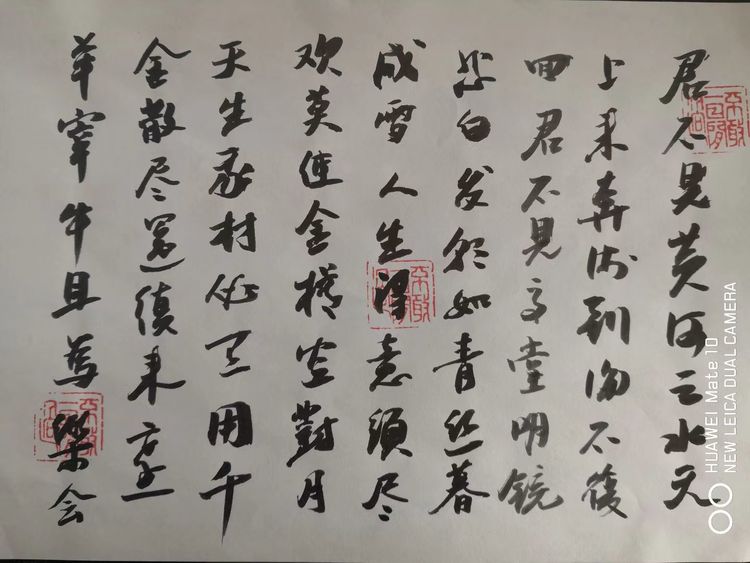 君不見黄河之水天
上来奔流到海不復
回君不見高堂明镜
悲白发朝如青丝暮
成雪人生得意須尽
欢莫使金樽空對月
天生我材必有用千
金散尽還復来烹
羊宰牛且為樂会
HUAWEI Mate 10
NEW LEICA DUAL CAMERA